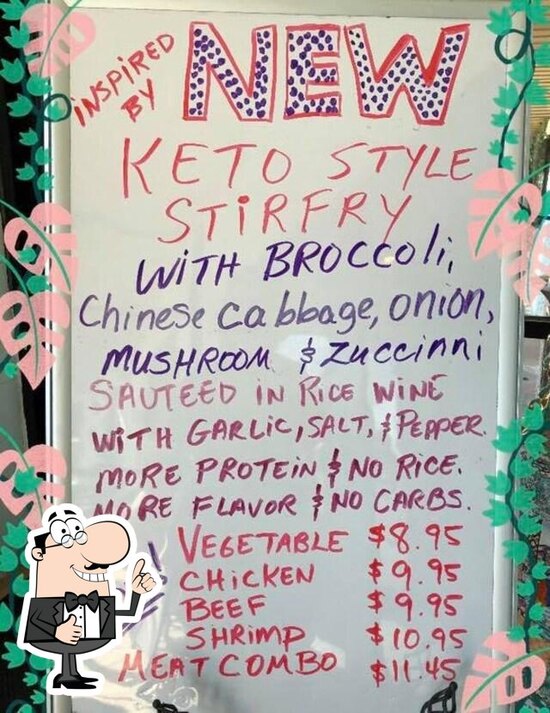 INSPIRED
BY
NEW
KETO STYLE
STIRFRY
WITH BROCCOLi,
Chinese cabbage, onion,
MUSHROOM & Zuccinni
SAUTEED IN RICE WINE
WITH GARLiC, SALT, & PEPPER.
MORE PROTEiN & NO RICE.
MORE FLAVOR & NO CARBS.
VEGETABLE $8.95
CHiCKEN $9.95
BEEF $9.95
SHRiMP $10.95
MEAT COMBO $11.45